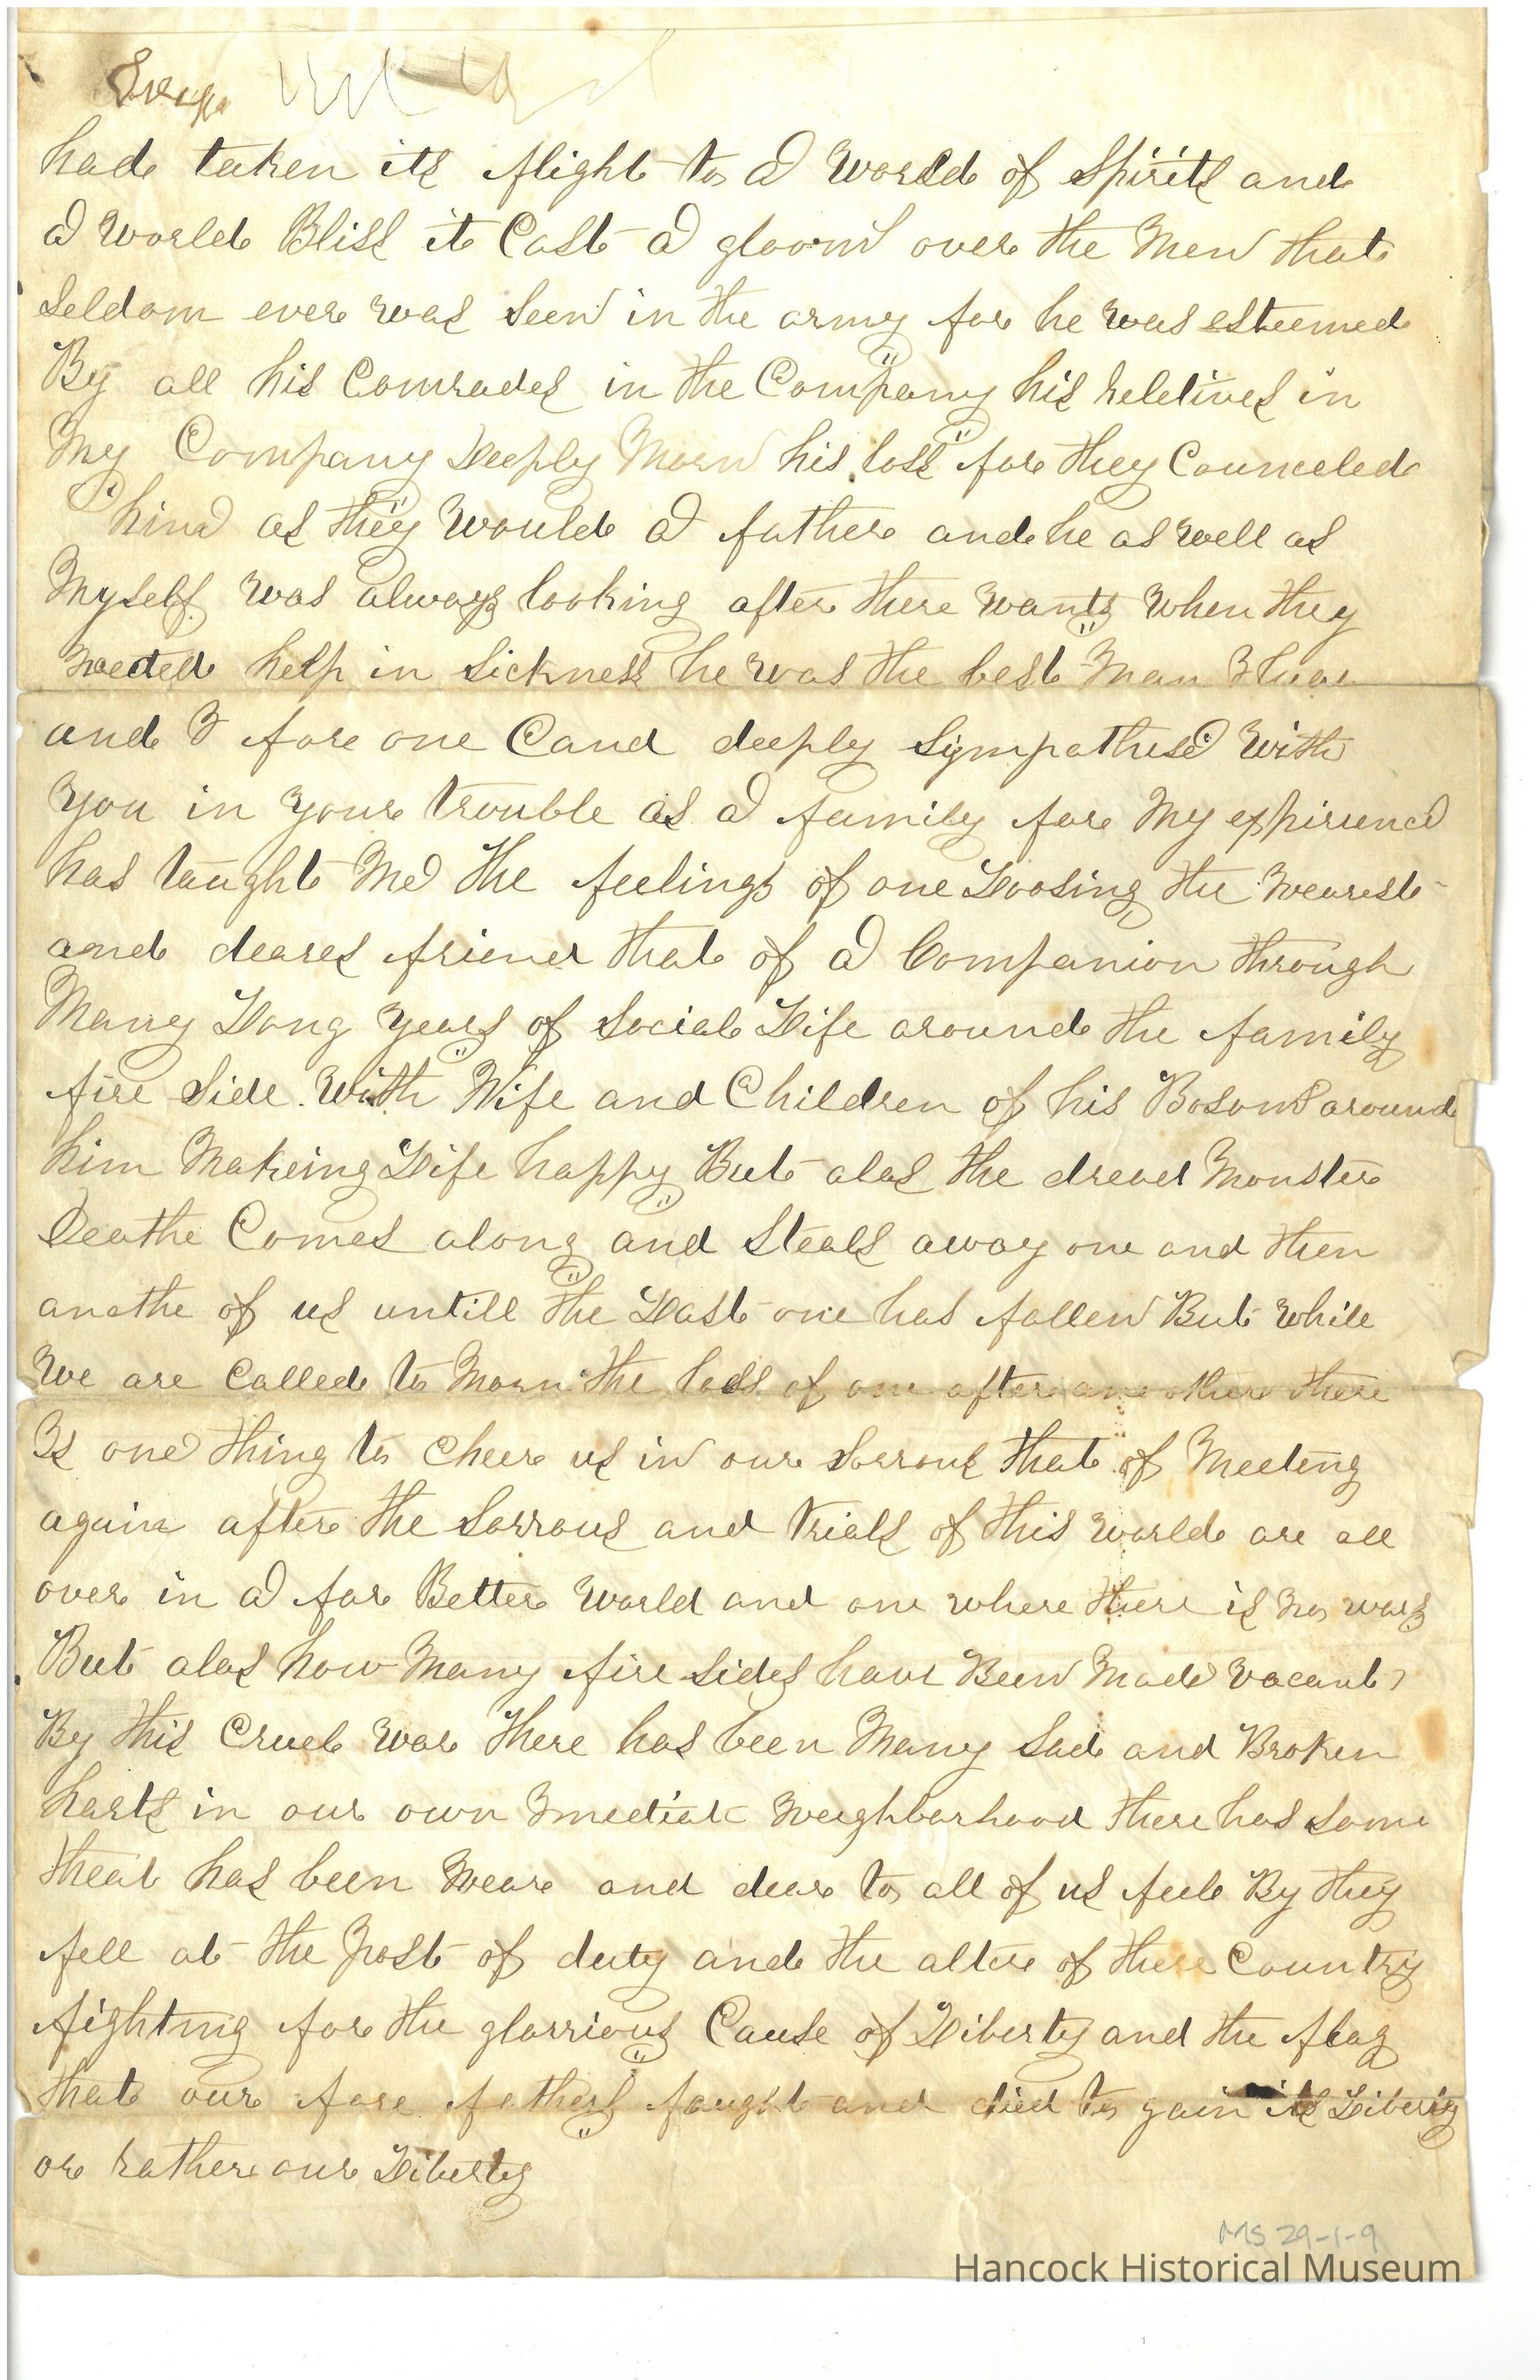 had taken its flight to a world of Spirits and
a world Bliss it Cast a gloom over the Men that
Seldom ever was Seen in the army for he was esteemed
By all his Comrades in the Company his reletives in
My Company Deeply Morn his loss for they Counceled
him as they would a father and he as well as
Myself was always looking after there wants when they
needed help in Sickness he was the best Man I
and I for one Can deeply Sympathise with
You in your trouble as a family for My expirience
has taught Me the feelings of one Loosing the nearest
and deares friend that of a Companion through
Many Long years of Social Life around the family
fire Side With Wife and Children of his Bosom around
him Makeing Life happy But alas the dread Monster
Deathe Comes along and Steals away one and then
anothe of us untill the Last one has fallen But while
We are Called to Morn the loss of one after an other there
Is one thing to Cheer us in our Sorrows that of Meeting
again after the Sorrows and trials of this world are all
over in a far Better World and one where there is no wars
But alas how Many fire Sides have Been Made vacant
By this Cruel war there has been Many Sad and Broken
harts in our own Imediate Neighborhood there has Some
that has been Near and dear to all of us feel By they
fell at the Post of duty and the alter of there Country
fighting for the glorrious Cause of Liberty and the flag
that our fore fathers faught and died to gain its Liberty
or rather our Liberty
MS 29-1-9
Hancock Historical Museum